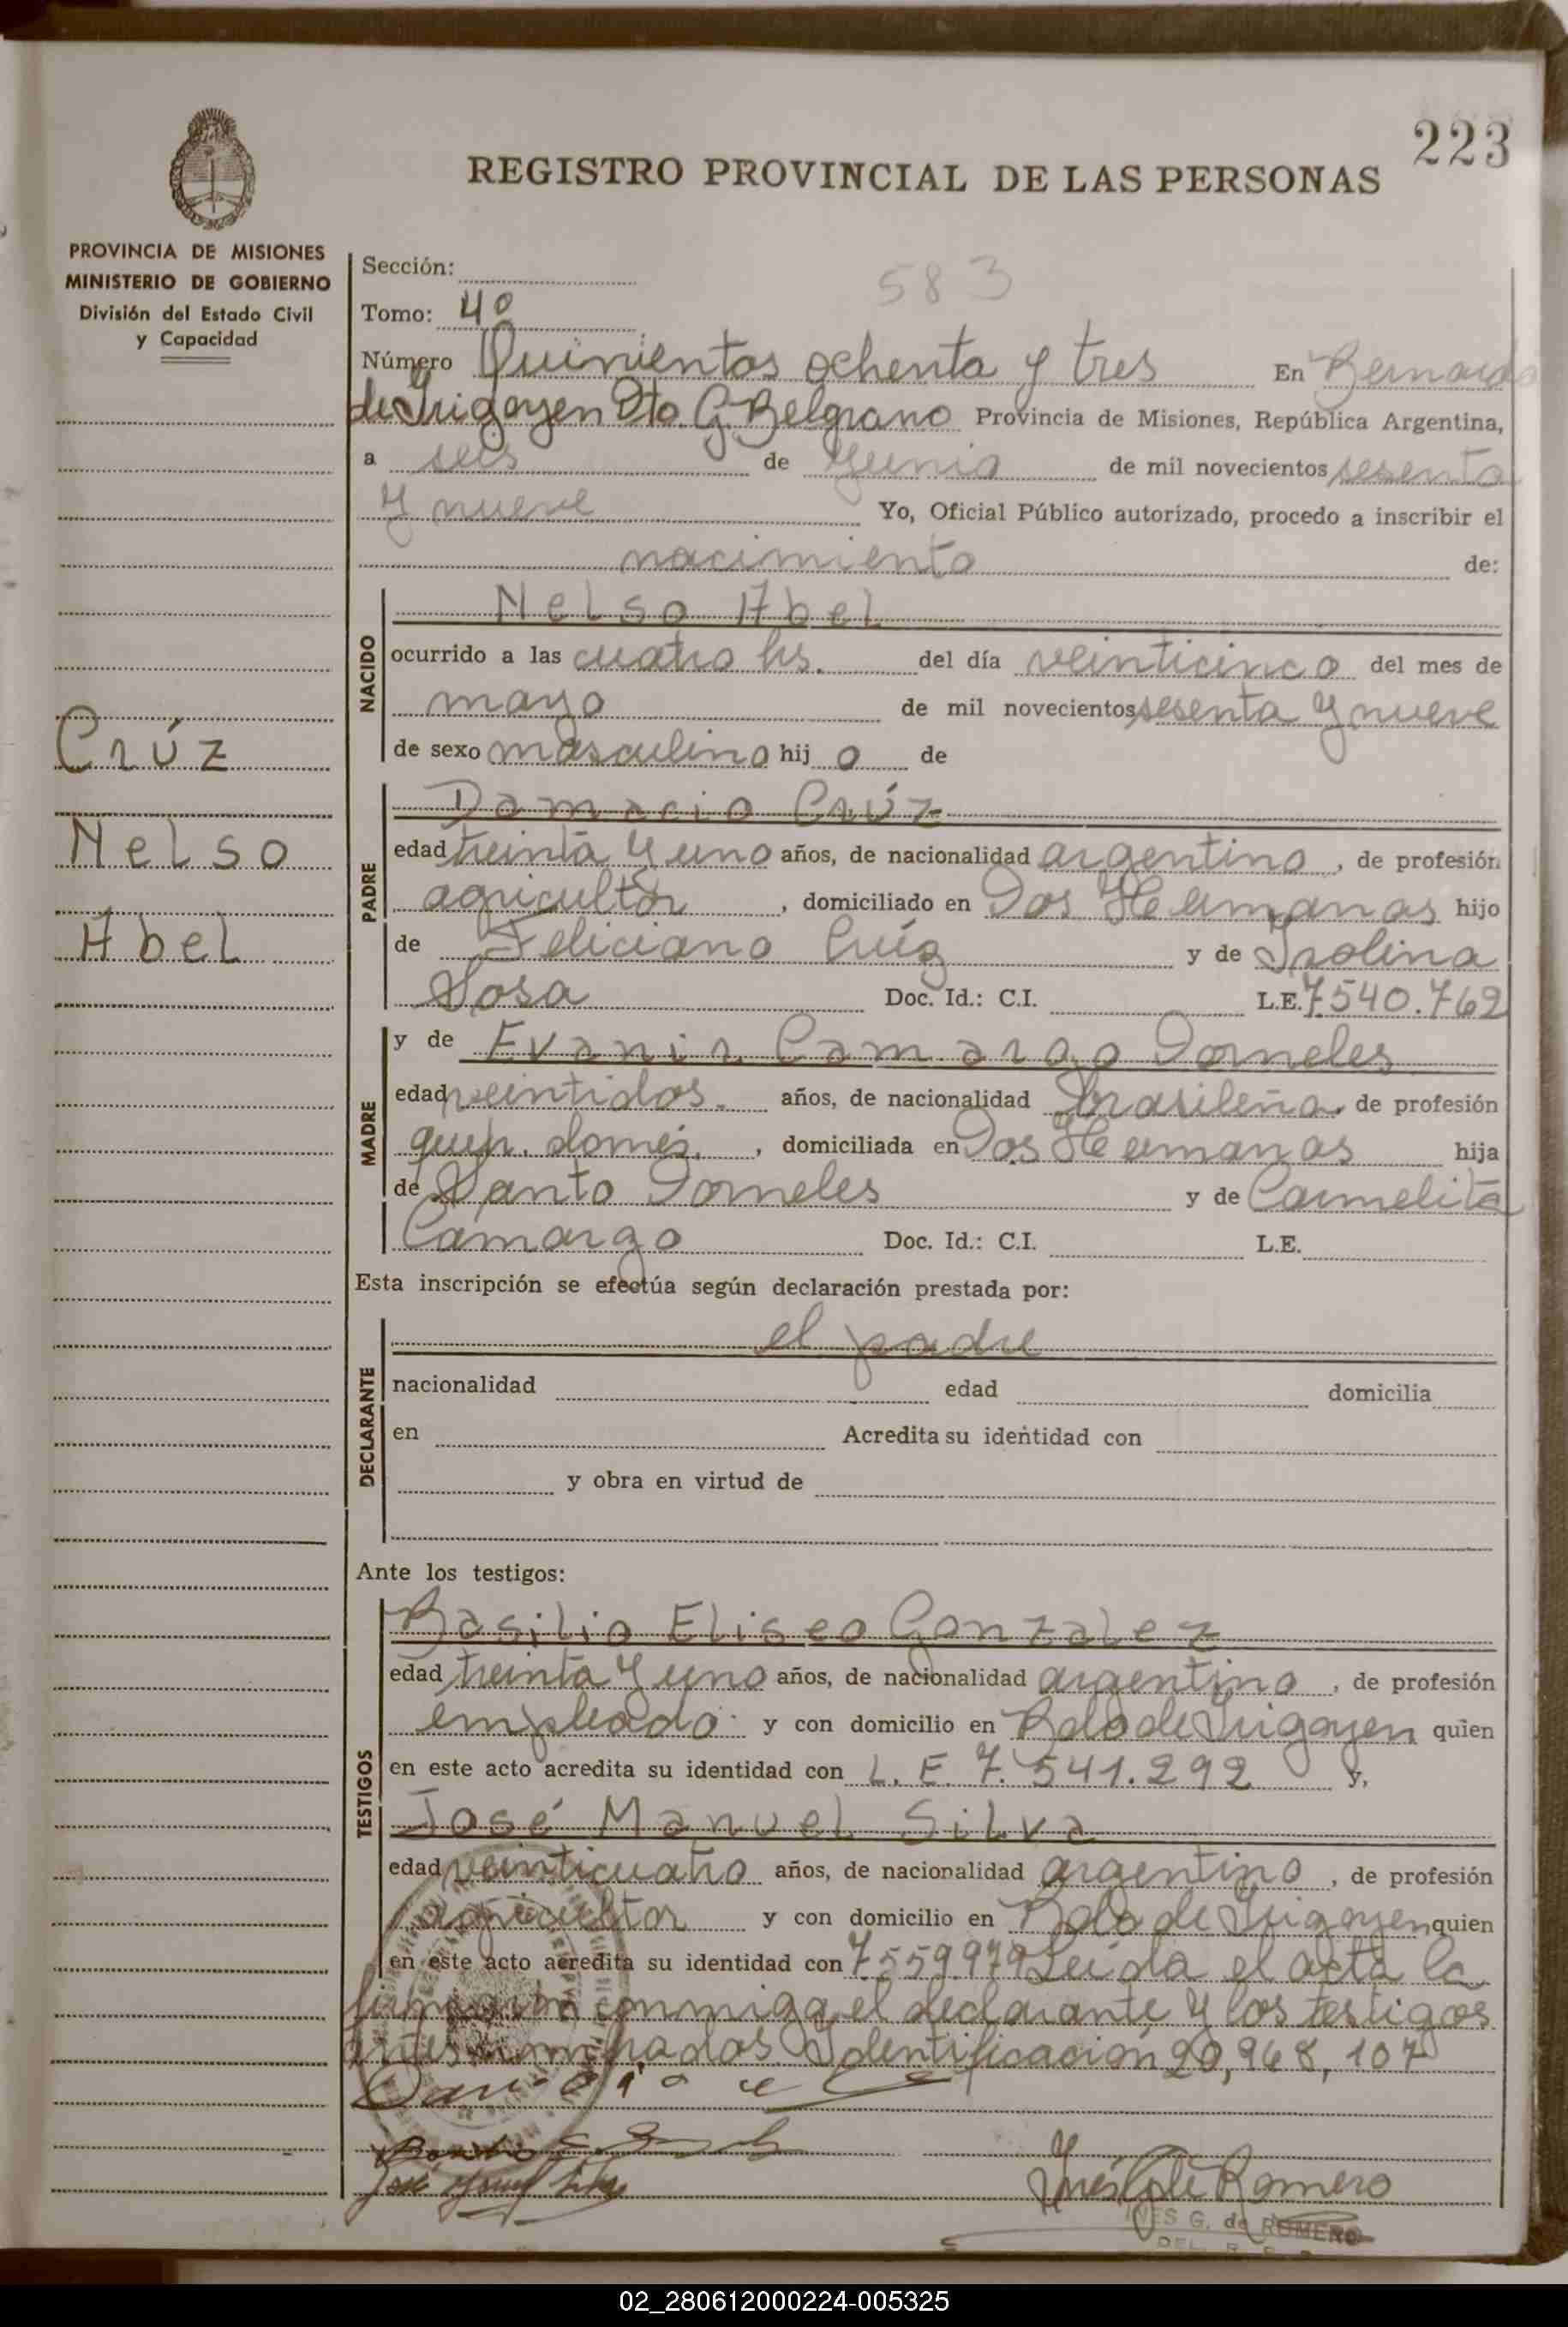 223
REGISTRO PROVINCIAL DE LAS PERSONAS
PROVINCIA DE MISIONES
MINISTERIO DE GOBIERNO
División del Estado Civil
y Capacidad
Crúz
Nelso
Abel
Sección:
583
Tomo: 4º
Número Quinientos ochenta y tres En Bernardo
de Irigoyen Dto. G. Belgrano Provincia de Misiones, República Argentina,
a seis de Junio de mil novecientos sesenta
y nueve Yo, Oficial Público autorizado, procedo a inscribir el
nacimiento de:
NACIDO
Nelso Abel
ocurrido a las cuatro hs. del día veinticinco del mes de
mayo de mil novecientos sesenta y nueve
de sexo masculino hijo de
PADRE
Damacio Crúz
edad treinta y uno años, de nacionalidad argentino, de profesión
agricultor, domiciliado en Dos Hermanas hijo
de Feliciano Crúz y de Isolina
Sosa Doc. Id.: C.I. L.E. 7540.762
MADRE
y de Evanir Camargo Dorneles
edad veintidos. años, de nacionalidad brasileña, de profesión
queh. domés., domiciliada en Dos Hermanas hija
de Santo Dorneles y de Carmelita
Camargo Doc. Id.: C.I. L.E.
Esta inscripción se efectúa según declaración prestada por:
DECLARANTE
el padre
nacionalidad edad domicilia
en Acredita su identidad con
y obra en virtud de
Ante los testigos:
TESTIGOS
Basilio Eliseo Gonzalez
edad treinta y uno años, de nacionalidad argentino, de profesión
empleado y con domicilio en Bdo de Irigoyen quien
en este acto acredita su identidad con L. E. 7.541.292 y,
José Manuel Silva
edad veinticuatro años, de nacionalidad argentino, de profesión
agricultor y con domicilio en Bdo de Irigoyen quien
en este acto acredita su identidad con 7559979 Leída el acta la
conmigo el declarante y los testigos
antes nombrados. Identificación 20,968,107
José Manuel Silva
Inés G de Romero
INES G. de ROMERO
02_280612000224-005325